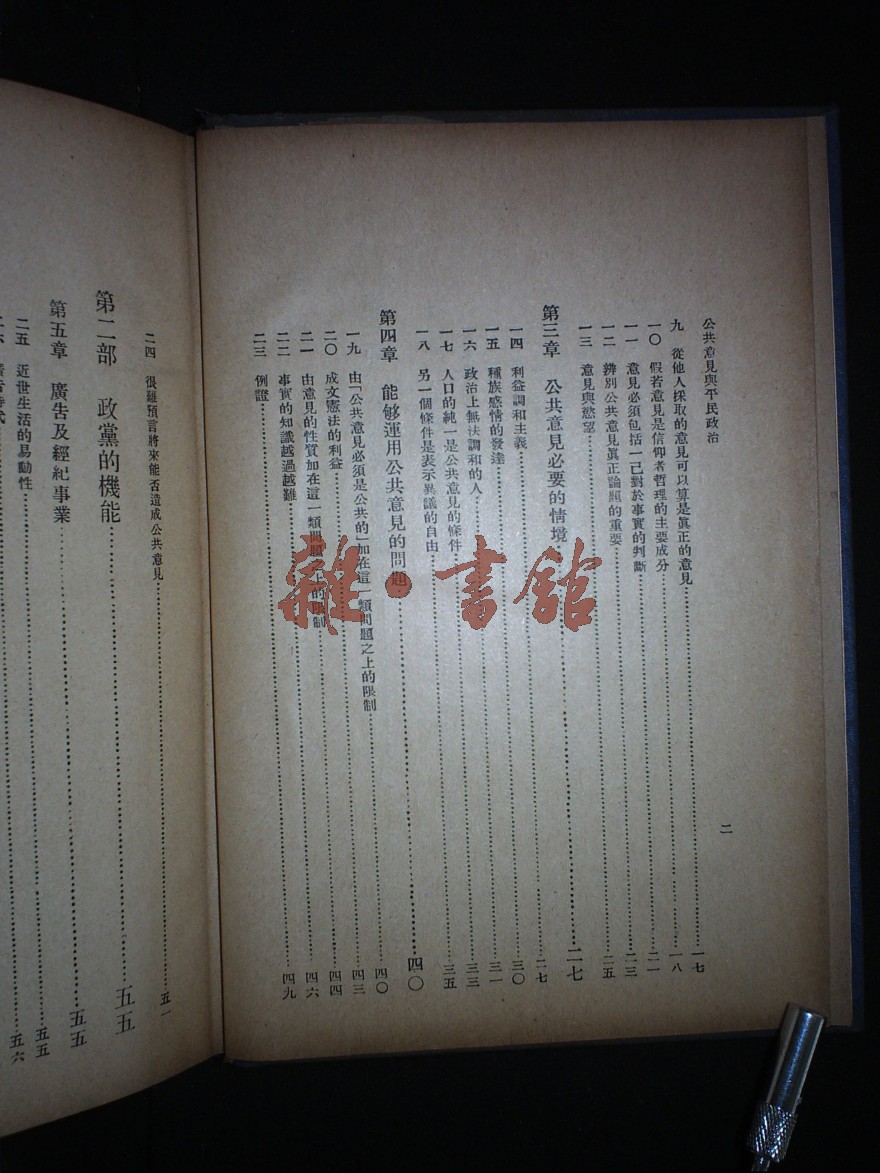 公共意見與平民政治
二
九 從他人採取的意見可以算是眞正的意見 一七
一〇 假若意見是信仰者哲理的主要成分 一八
一一 意見必須包括一己對於事實的判斷 二一
一二 辨別公共意見眞正論題的重要 二三
一三 意見與慾望 二五
第三章 公共意見必要的情境 二七
一四 利益調和主義 二七
一五 種族感情的發達 三〇
一六 政治上無法調和的人 三一
一七 人口的純一是公共意見的條件 三三
一八 另一個條件是表示異議的自由 三五
第四章 能够運用公共意見的問題 四〇
一九 由「公共意見必須是公共的」加在這一類問題之上的限制 四〇
二〇 成文憲法的利益 四三
二一 由意見的性質加在這一類問題之上的限制 四四
二二 事實的知識越過越難 四六
二三 例證 四九
二四 很難預言將來能否造成公共意見 五一
第二部 政黨的機能 五五
第五章 廣告及經紀事業 五五
二五 近世生活的易動性 五五
五六
雜·書館